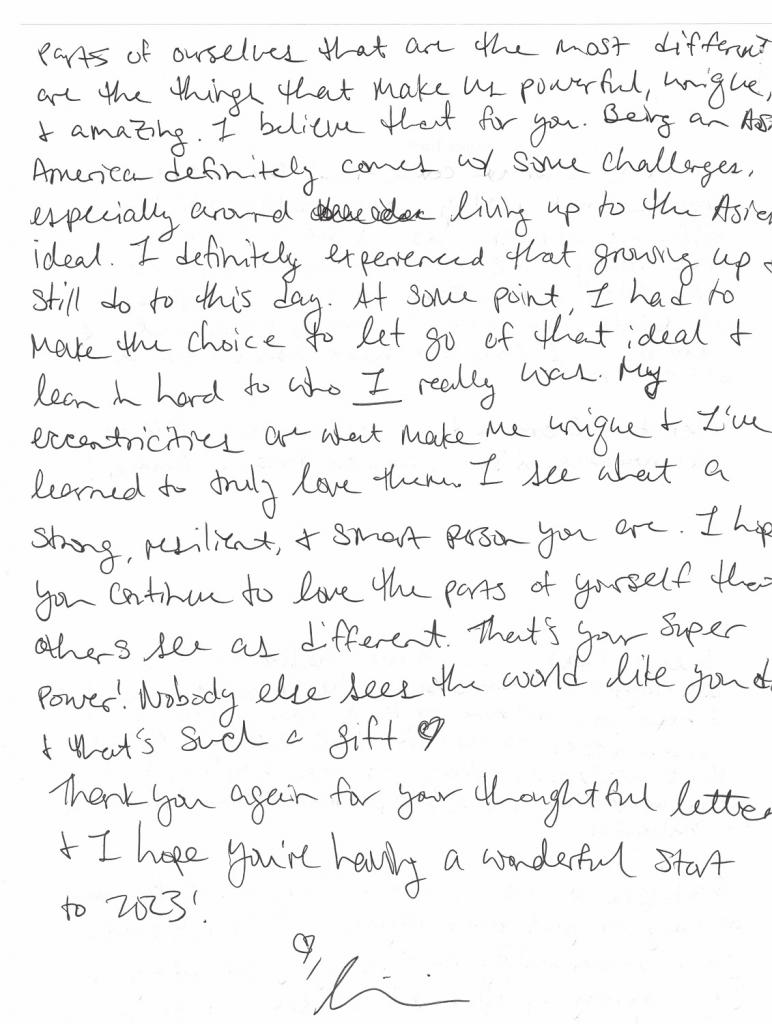 parts of ourselves that are the most different
are the things that make us powerful, unique,
& amazing. I believe that for you. Being an Asi
America definitely comes w/ some challenges,
especially around living up to the Asian
ideal. I definitely experienced that growing up &
still do to this day. At some point, I had to
make the choice to let go of that ideal &
lean in hard to who I really was. My
eccentricities are what make me unique & I've
learned to truly love them. I see what a
strong, resilient, & smart person you are. I hop
you continue to love the parts of yourself tha
others see as different. That's your super
power! Nobody else sees the world like you d
& that's such a gift ♡
Thank you again for your thoughtful letter
& I hope you're having a wonderful start
to 2023!
♡,